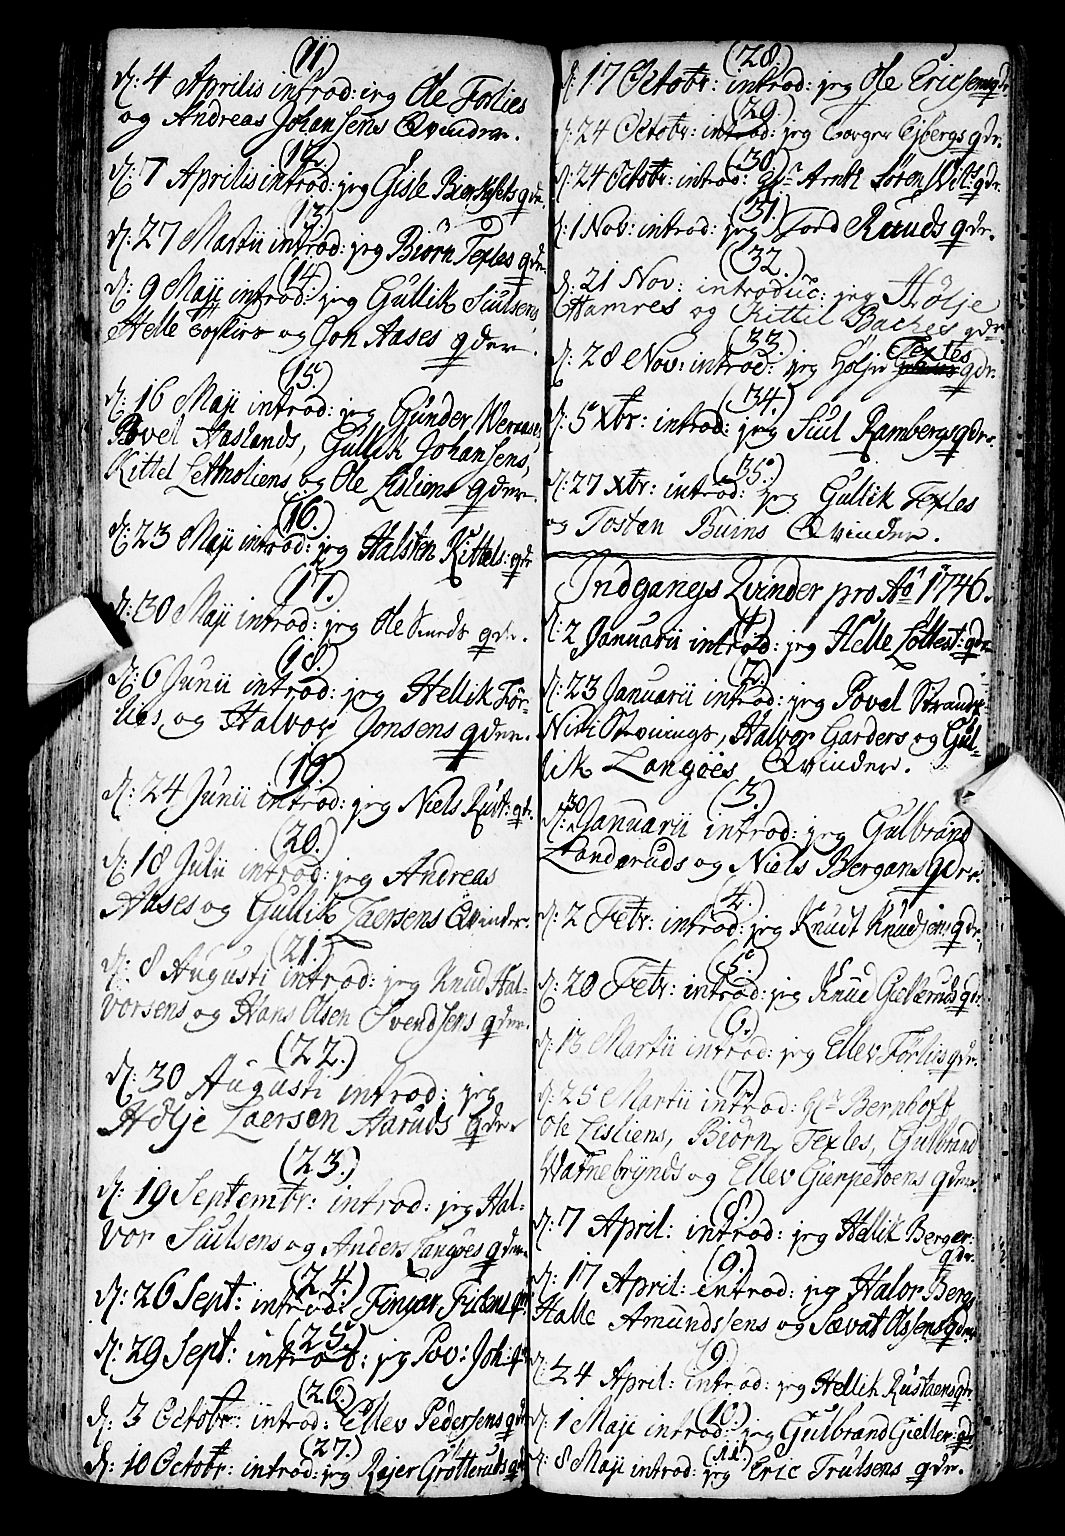 (11)
D: 4 Aprilis introd: jeg Ole Forlies
og Andreas Johansens Qvinder.
(12.)
D: 7 Aprilis introd: jeg Gisle qdr.
(13.)
D: 27 Martii introd: jeg Biörn Texles qdr.
(14.)
D: 9 Maji introd: jeg Gullik Siulsens,
Helle og Joh Aases qder.
(15.)
D: 16 Maji introd: jeg Gunder
Povel Haslands, Gullik Johansens,
Kittel og Ole Lisliens qder.
(16.)
D: 23 Maji introd: jeg Halsten Kittels: qdr
(17.)
D: 30 Maji introd: jeg Ole qdr.
(18.)
D: 6 Junii introd: jeg Hellik För-
lies, og Halvor Jonsens qder.
(19.)
D: 24 Junii introd: jeg Niels Rust: qdr.
(20.)
D: 18 Julii introd: jeg Andreas
Aases og Gullik Laersens Qvinder.
(21.)
D: 8 Augusti introd: jeg Knud Hal-
vorsens og Hans Olsen Svendsens qder.
(22.)
D: 30 Augusti introd: jeg
Hölje Laersen Aaruds qder
(23.)
D: 19 Septembr: introd: jeg Hal-
vor Siulsens og Anders Langöes qder.
(24.)
D: 26 Sept: introd:
(25.)
D: 29 Sept: introd: jeg Pov: Joh: qdr
(26.)
D: 3 Octobr: introd: Ellev Pedersens qdr
(27.)
D: 10 Octobr: introd: jeg Rejer Grötteruds qdr
(28.)
D: 17 Octobr: introd: jeg Ole Ericsens qdr
(29.)
D: 24 Octobr: introd: jeg Torger qdr.
(30.)
D: 24 Octobr: introd: Hr Arntz Sören qdr.
(31.)
D: 1 Nov: introd: jeg Tord Ruuds qdr.
(32.)
D: 21 Nov: introduc: jeg Hölje
Hamres og Kittel Baches qdr.
(33.)
D: 28 Nov: introd: jeg Holje Texles qdr.
(34.)
D: 5 Xbr: introd: jeg Siul Rambergs qdr.
(35.)
D: 27 Xbr: introd: jeg Gullik Texles
og Tosten Buins Qvinder.
Indgangs Qvinder pro Ao 1746.
(1.)
D: 2 Januarii introd: jeg Helle qdr.
(2.)
D: 23 Januarii introd: jeg Povel Strands
Niri Stvnings, Halvor Garders og Gul-
lik Langöes Qvinder.
(3.)
D: 30 Januarii introd: jeg Gulbrand
Landeruds og Niels Bergans qder.
(4.)
D: 2 Febr: introd: jeg Knudt Knudsens qdr.
(5.)
D: 20 Febr: introd: jeg Knud qdr.
(6.)
D: 13 Martii introd: jeg Ellev Förlis qdr.
(7.)
D: 25 Martii introd: Hr Bernhoft
Ole Lisliens, Biörn Texles, Gulbrand
Watnebrynds og Ellev qder.
(8.)
D: 7 April: introd: jeg Hellik Berger:
qdr.
(9.)
D: 17 April: introd: jeg Halvor Bergs
Halle Amundssens og Sævat Olssens qder.
(9)
D: 24 April: introd: jeg Hellik qdr
(10.)
D: 1 Maji introd: jeg Gulbrand qdr
(11.)
D: 8 Maji introd: jeg Eric Trulsens qdr.